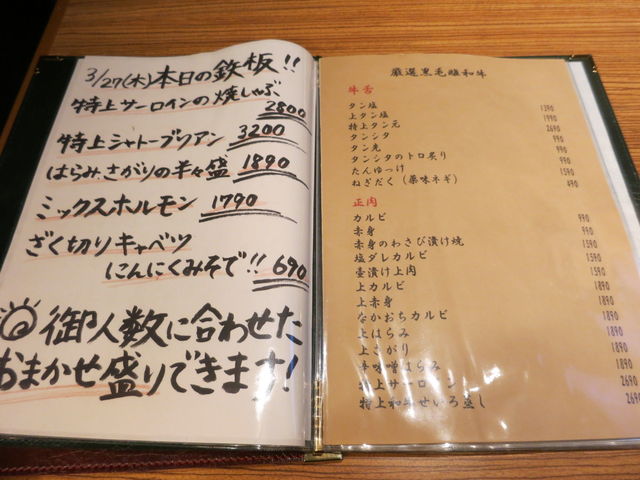 3/27(木)本日の鉄板!!
特上サーロインの焼しゃぶ
2800
特上シャトーブリアン 3200
はらみ、さがりの半々盛 1890
ミックスホルモン 1790
ざく切りキャベツ
にんにくみそで!! 690
御人数に合わせた
おまかせ盛りできます!
厳選黒毛雌和牛
牛舌
タン塩 1390
上タン塩 1990
特上タン元 2690
タンシタ 990
タン先 990
タンシタのトロ炙り 990
たんゆっけ 1590
ねぎだく(薬味ネギ) 490
正肉
カルビ 990
赤身 990
赤身のわさび漬け焼 1590
塩ダレカルビ 1590
壺漬け上肉 1590
上カルビ 1890
上赤身 1890
なかおちカルビ 1890
上はらみ 1890
上さがり 1890
辛味噌はらみ 1890
特上サーロイン 2690
特上和牛せいろ蒸し 2690